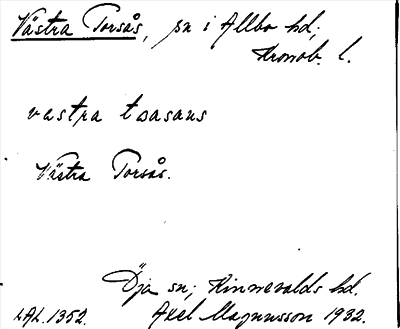 Västra Torsås, sn i Allbo hd;
Kronob. l.
vastra toasans
Västra Torsås.
Öja sn; Kinnevalds hd.
LAL. 1352. Axel Magnusson 1932.